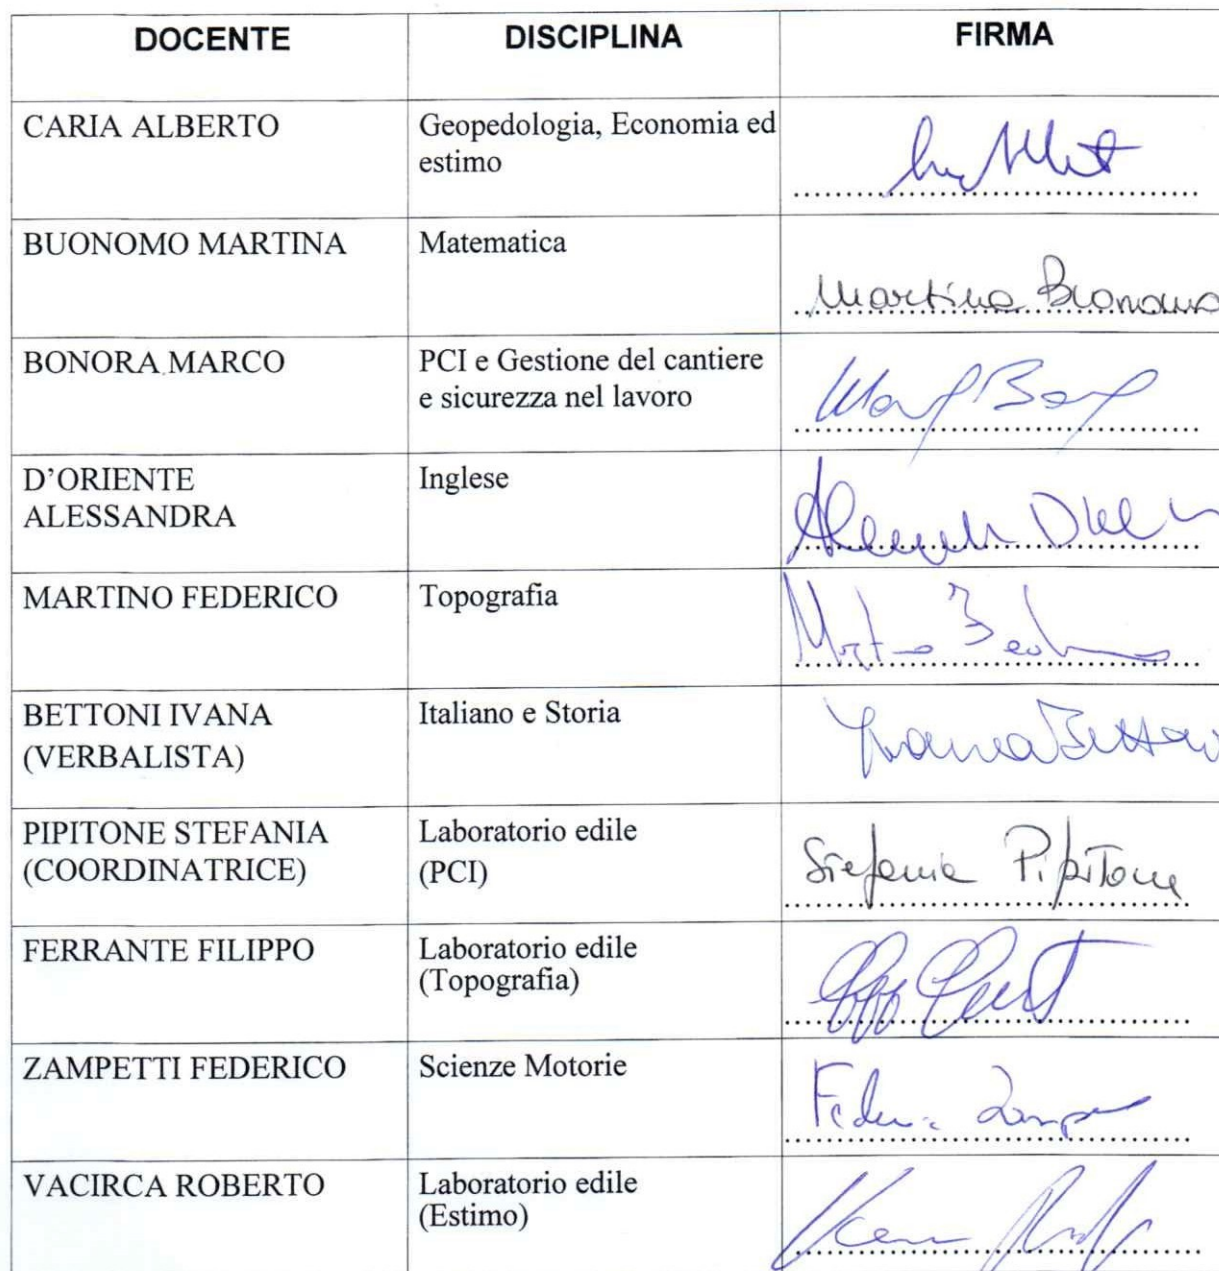 DOCENTE DISCIPLINA FIRMA
CARIA ALBERTO Geopedologia, Economia ed
estimo
BUONOMO MARTINA Matematica
Martina Buonomo
BONORA MARCO PCI e Gestione del cantiere
e sicurezza nel lavoro
D'ORIENTE Inglese
ALESSANDRA
MARTINO FEDERICO Topografia
BETTONI IVANA Italiano e Storia
(VERBALISTA)
Ivana Bettoni
PIPITONE STEFANIA Laboratorio edile
(COORDINATRICE) (PCI)
Stefania Pipitone
FERRANTE FILIPPO Laboratorio edile
(Topografia)
ZAMPETTI FEDERICO Scienze Motorie
VACIRCA ROBERTO Laboratorio edile
(Estimo)